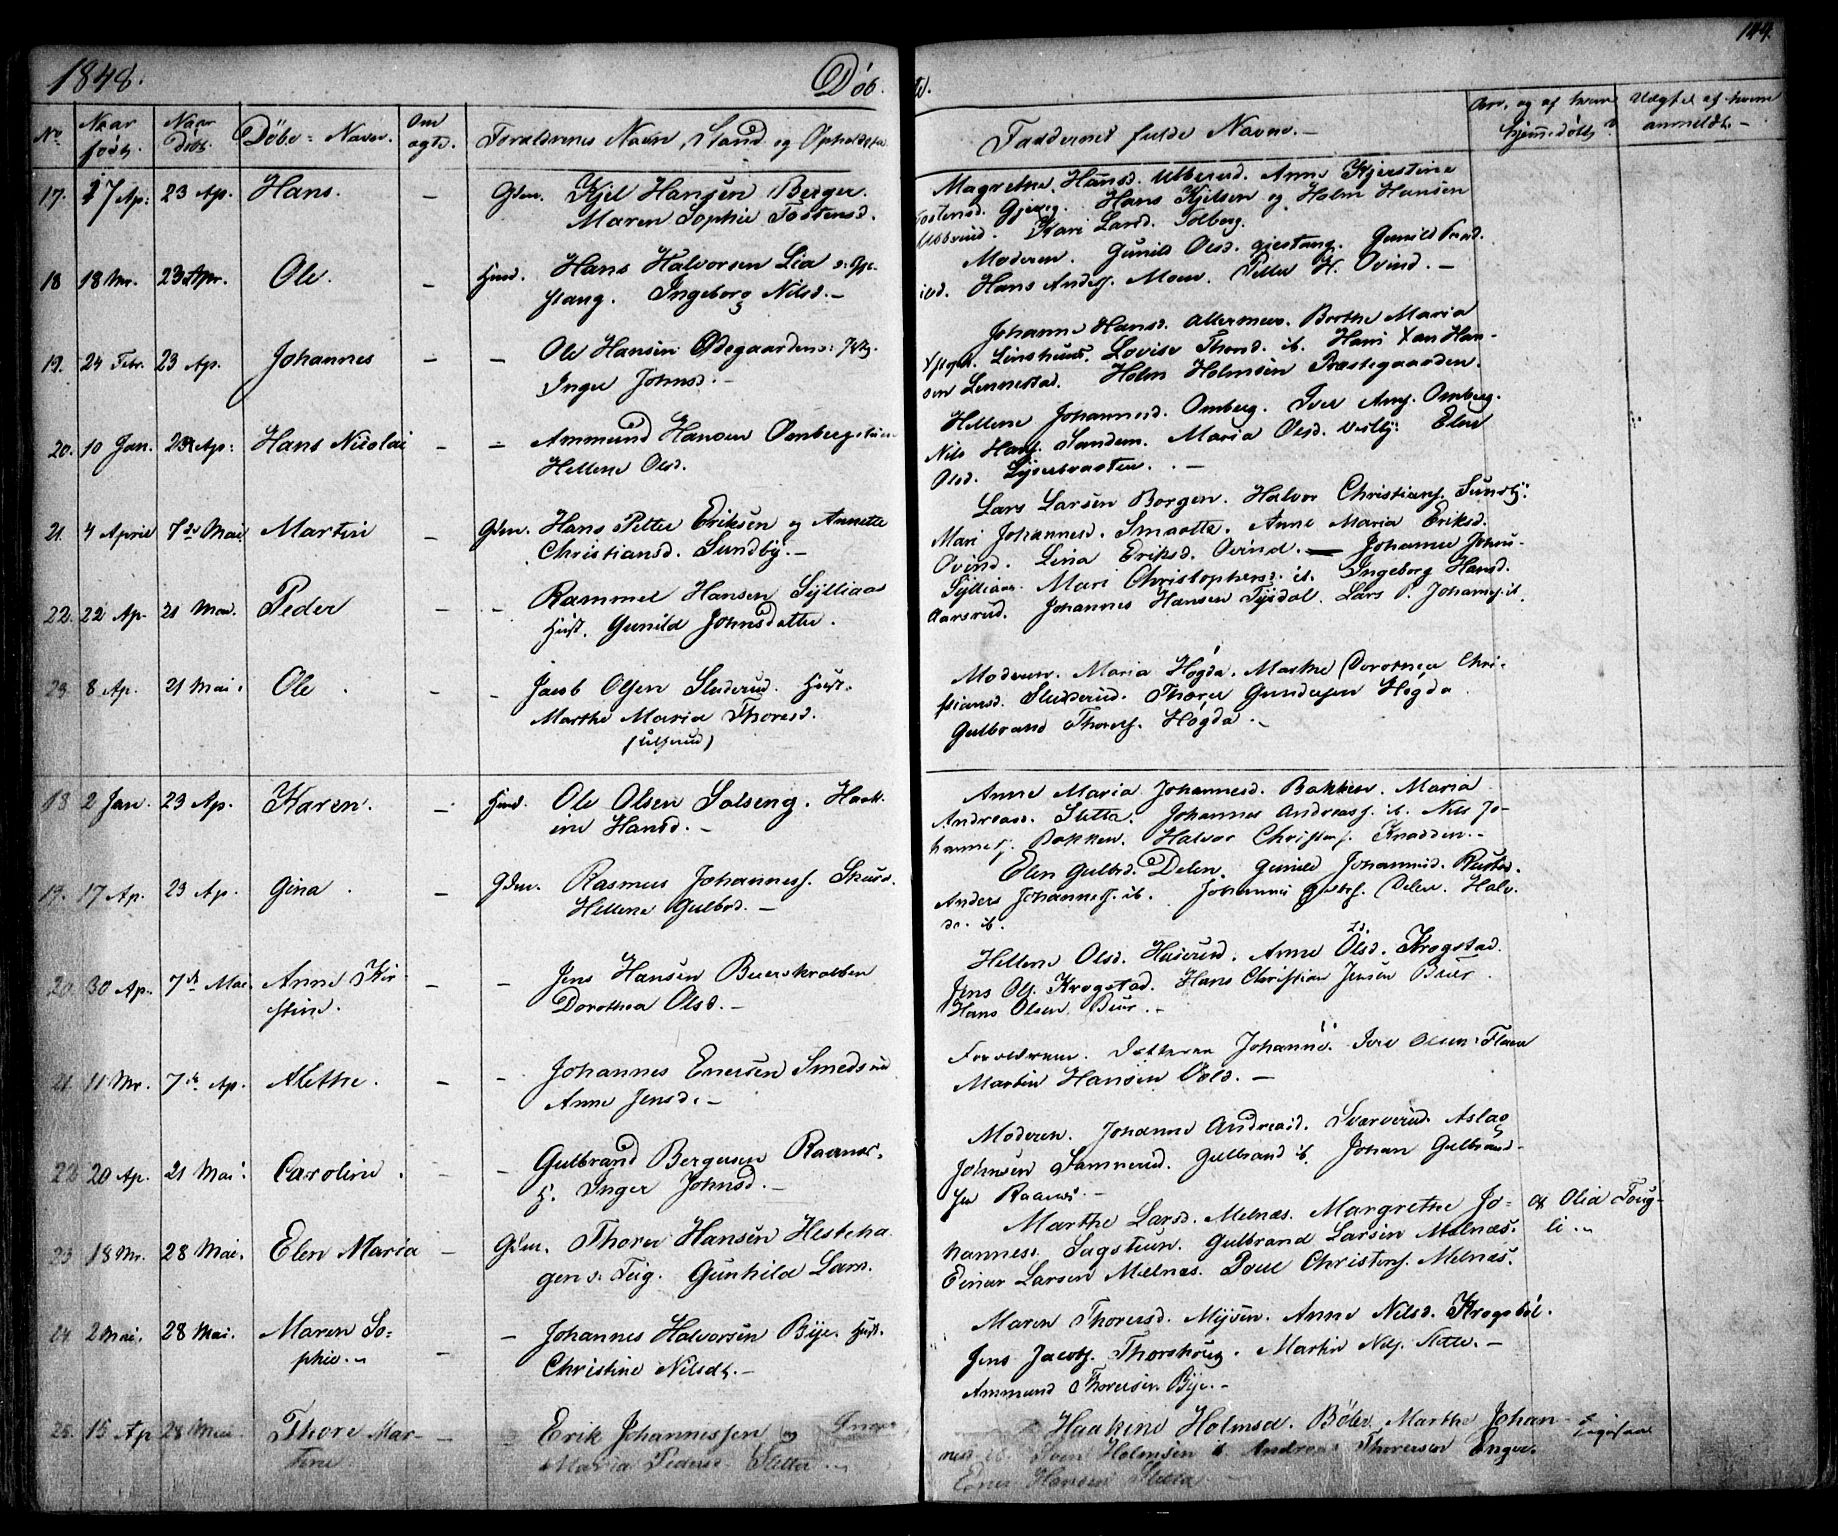 1848.
Döb
te.
144.
No
Naar födt.
Naar Döbt.
Döbe-Navn.
Om ægte.
Forældrenes Navn, Stand og Opholdsste
Faddernes fulde Navne.
Om, og af hvem hjemmedöbt?
Udgtel af hvem anmeldt.
17. 17 Ap: 23 Ap. Hans. — Gdm. Kjel Hansen Berger
Maren Sophie Tostensd.
Magrethe Hansd. Ulberud. Anne Kjerstine
Tostensd. Gjexeg. Hans Kjelsen og Holm Hansen
Ulbbrud. Kari Larsd. Tolberg.
18 18 Mr. 23 Apr. Ole. — Huusd. Hans Halvorsen Lia s. Gje-
stang. Ingeborg Nilsd.
Moderen. Gunild Olsd. Gjestang. Gunild Knud.
Hans Anders. Moen. Petter H. Ovind.
19. 24 Febr. 23 Ap. Johannes — — Ole Hansen Ødegaarden
Inger Johnsd.
Johanne Hansd. Allermoen. Berthe Maria
Lovise Thond. ib. Hans Han-
sen Lennestad. Holm Holmsen Præstegaarden.
20. 10 Jan. 23 Ap: Hans Nicolai — — Ammund Hansen Ombergstuen
Hellene Olsd.
Hellene Johannesd. Omberg. Iver Ams. Omberg.
Nils Hans. Sanden. Maria Olsd. Vestby. Elen
Olsd.
21. 4 April 7de Mai Martin — Gdm. Hans Petter Eriksen og Annette
Christiansd. Sundby.
Lars Larsen Borgen. Halvor Christians. Sundby.
Mari Johannesd. Smaatta. Anne Maria Eriksd.
Ovind. Lina Eriksd. Ovind. — Johanne Johns-
22. 22 Ap. 21 Mai. Peder — — Rammel Hansen Sylliaas
Huust. Gunild Johnsdatter.
Sylliaas. Mari Christophersd. ib. Ingeborg Hansd.
Aarsrud. Johannes Hansen Tysdal. Lars P. Johans. ib.
23. 8 Ap. 21 Mai. Ole. — — Jacob Olsen Sluderud. Huust.
Marthe Maria Thoresd.
(Ulserud)
Moderen. Maria Högda. Marthe Dorothea Chri-
stiansd. Sludderud. Thorer Gundersen Högda
Gulbrand Thores. Högda.
18 2 Jan. 23 Ap. Karen. — Huusd. Ole Olsen Solseng. Haak-
ine Hansd.
Anne Maria Johannesd. Bakken. Maria
Andreasd. Sletta. Johannes Andreass. ib. Nils Jo-
hannes. Bakken. Halvor Christens. Knadden.
19. 17 Ap. 23 Ap. Gina. — Gdm. Rasmus Johanness. Skuss.
Hellene Gulbd.
Elen Gulbd. Delen. Gunild Johannisd. Rustad.
Anders Johannes. ib. Johannes Gulbs. Delen. Halv.
do. ib.
20. 30 Ap. 7de Mai Anne Kir-
stine. — — Jens Hansen Buerskrabben
Dorothea Olsd.
Hellene Olsd. Huserud. Anne Olsd. Krogstad.
Jens Ols. Krogstad. Hans Christian Jensen Buer.
Hans Olsen Buer.
21. 11 Mr. 7de Ap. Alethe. — — Johannes Enersen Smedsrud
Anne Jensd.
Forældrene. Johanne. Iver Olsen Flaen
Martin Hansen Vold.
22 20 Ap. 21 Mai: Caroline. — — Gulbrand Bergersen Raanaas.
H. Inger Johnsd.
Moderen. Johanne Andreasd. Sværverud. Aslag
Johnsen Sonnerud. Gulbrand ib. Johan Gulbrand-
sen Raanas.
23 18 Mr. 28 Mai. Elen Maria — Gdm. Thorer Hansen Hesteha
gen s. Teig. Gunhild Lars.
Marthe Larsd. Melnæs. Margrethe Jo-
hannesd. Sagstuen. Gulbrand Larsen Melnæs.
Einar Larsen Melnæs. Poul Christens. Melnæs.
af Olia Toug-
li.
24 2 Mai. 28 Mai. Maren So-
phie. — — Johannes Halvorsen Bye. Huust.
Christine Nilsdt.
Maren Thoresd. Myren. Anne Nilsd. Krogsböl.
Jens Jacobs. Thorshoug. Martin Nils. Slette.
Ammund Thoresen Bye.
25. 15 Ap 28 Mai Thore Mar-
tine. — — Erik Johannessen og
Maria Pedersd. Sletta.
Haakine Holmsd. Böler. Marthe Johan-
nesd. ib. Sven Holmsen ib. Andreas Thoresen Enger.
Ener Hansen Sletta